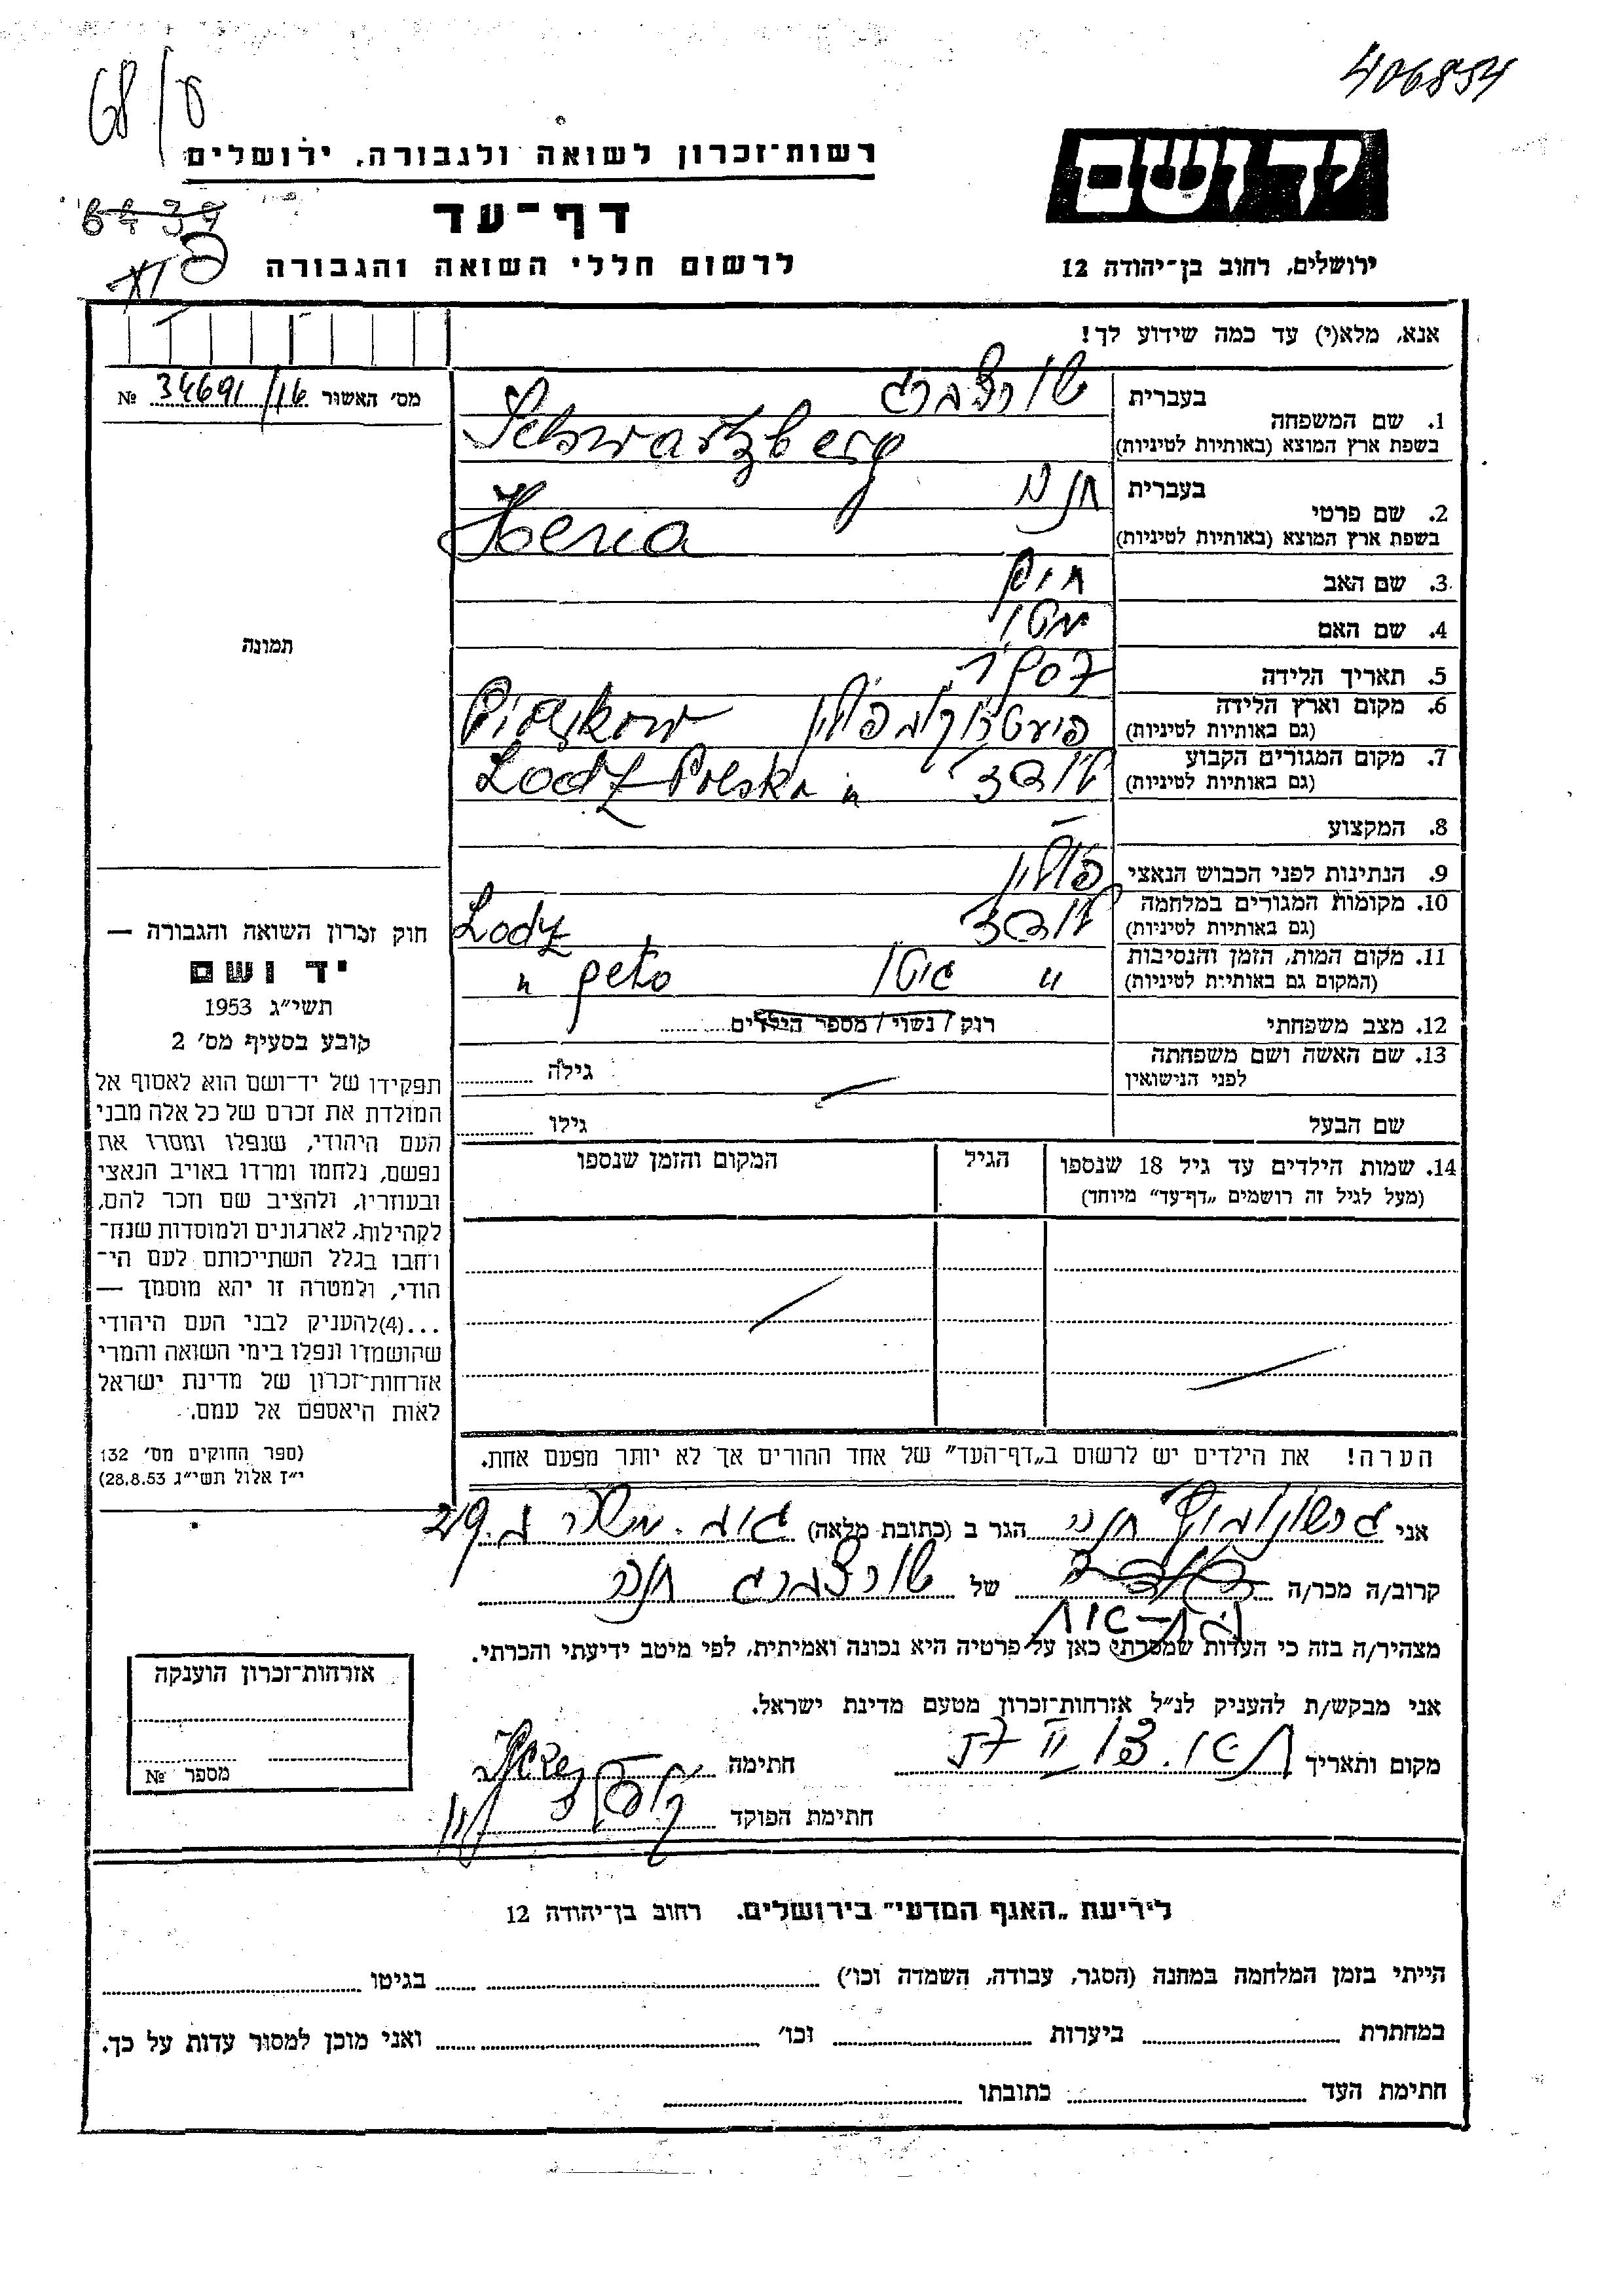 406854
68/ס
רשות־זכרון לשואה ולגבורה, ירושלים
יד ושם
6439
דף־עד
לרשום חללי השואה והגבורה
ירושלים, רחוב בן־יהודה 12
אנא, מלא(י) עד כמה שידוע לך!
מס׳ האשור 34691/16 №
1. שם המשפחה
בעברית שורצברג
בשפת ארץ המוצא (באותיות לטיניות) Schwartzberg
2. שם פרטי
בעברית חנה
בשפת ארץ המוצא (באותיות לטיניות) Henia
3. שם האב חיים
4. שם האם
5. תאריך הלידה 1907
6. מקום וארץ הלידה
(גם באותיות לטיניות) פולין
7. מקום המגורים הקבוע
(גם באותיות לטיניות) לודז׳ Lodz Polska
8. המקצוע –
9. הנתינות לפני הכבוש הנאצי פולין
10. מקומות המגורים במלחמה
(גם באותיות לטיניות) לודז Lodz
11. מקום המות, הזמן והנסיבות
(המקום גם באותיות לטיניות) " גיטו geto "
12. מצב משפחתי רוק / נשוי / מספר הילדים
13. שם האשה ושם משפחתה
לפני הנישואין גילה
שם הבעל גילו
14. שמות הילדים עד גיל 18 שנספו
(מעל לגיל זה רושמים „דף־עד״ מיוחד)
הגיל
המקום והזמן שנספו
תמונה
חוק זכרון השואה והגבורה —
יד ושם
תשי״ג 1953
קובע בסעיף מס׳ 2
תפקידו של יד־ושם הוא לאסוף אל
המולדת את זכרם של כל אלה מבני
העם היהודי, שנפלו ומסרו את
נפשם, נלחמו ומרדו באויב הנאצי
ובעוזריו, ולהציב שם וזכר להם,
לקהילות, לארגונים ולמוסדות שנח־
רחבו בגלל השתייכותם לעם הי־
הודי, ולמטרה זו יהא מוסמך —
...(4)להעניק לבני העם היהודי
שהושמדו ונפלו בימי השואה והמרי
אזרחות־זכרון של מדינת ישראל
לאות היאספם אל עמם.
(ספר החוקים מס׳ 132
י״ז אלול תשי״ג 28.8.53)
הערה! את הילדים יש לרשום ב„דף־העד״ של אחד ההורים אך לא יותר מפעם אחת.
אני חנה הגר ב (כתובת מלאה) 29
קרוב/ה מכר/ה של שורצברג חנה
מצהיר/ה בזה כי העדות שמסרתי כאן על פרטיה היא נכונה ואמיתית, לפי מיטב ידיעתי והכרתי.
אני מבקש/ת להעניק לנ״ל אזרחות־זכרון מטעם מדינת ישראל.
מקום ותאריך חתימה
חתימת הפוקד
אזרחות־זכרון הוענקה
מספר №
לידיעת „האגף המדעי״ בירושלים. רחוב בן־יהודה 12
הייתי בזמן המלחמה במחנה (הסגר, עבודה, השמדה וכו׳) בגיטו
במחתרת ביערות וכו׳ ואני מוכן למסור עדות על כך.
חתימת העד כתובתו